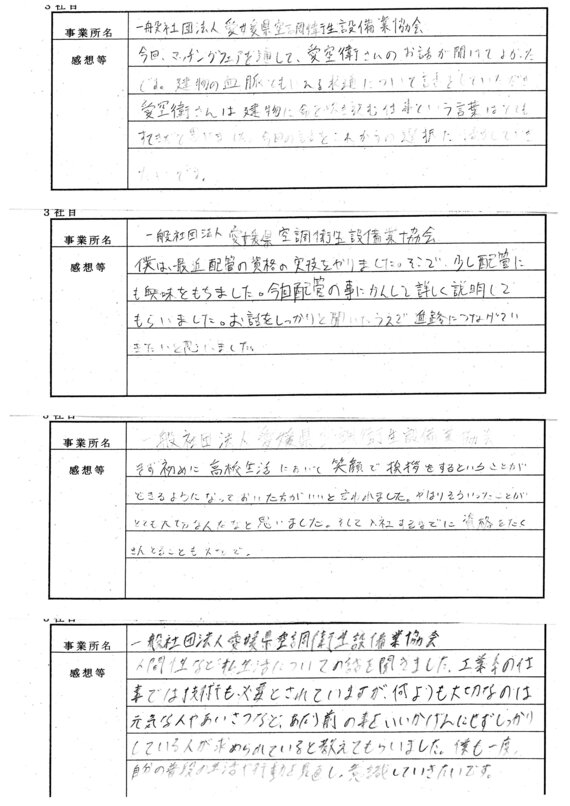 3社目
事業所名 一般社団法人 愛媛県空調衛生設備業協会
感想等 今日、マッチングフェアを通して、愛空衛さんのお話が聞けてよかった
です。建物の血脈ともいえる
愛空衛さんは建物に命を吹き込む仕事という言葉はとても
たいです。
3社目
事業所名 一般社団法人 愛媛県空調衛生設備業協会
感想等 僕は、最近配管の資格の実技をやりました。そこで、少し配管に
も興味をもちました。今回配管の事にかんして詳しく説明して
もらいました。お話をしっかりと聞いたうえで進路につなげてい
きたいと思いました。
3社目
事業所名 一般社団法人 愛媛県空調衛生設備業協会
感想等 まず初めに高校生活において笑顔で挨拶をするということが
できるようになっておいた方がいいと言われました。やはりそういったことが
とても大切なんだなと思いました。そして入社するまでに資格をたく
さんとることも大切
3社目
事業所名 一般社団法人 愛媛県空調衛生設備業協会
感想等 人間性など私生活についての話を聞きました。工業系の仕
事では技術も必要とされていますが、何よりも大切なのは
元気な人やあいさつなど、あたり前の事をいいかげんにせずしっかり
している人が求められていると教えてもらいました。僕も一度、
自分の普段の生活や行動を見直し、意識していきたいです。